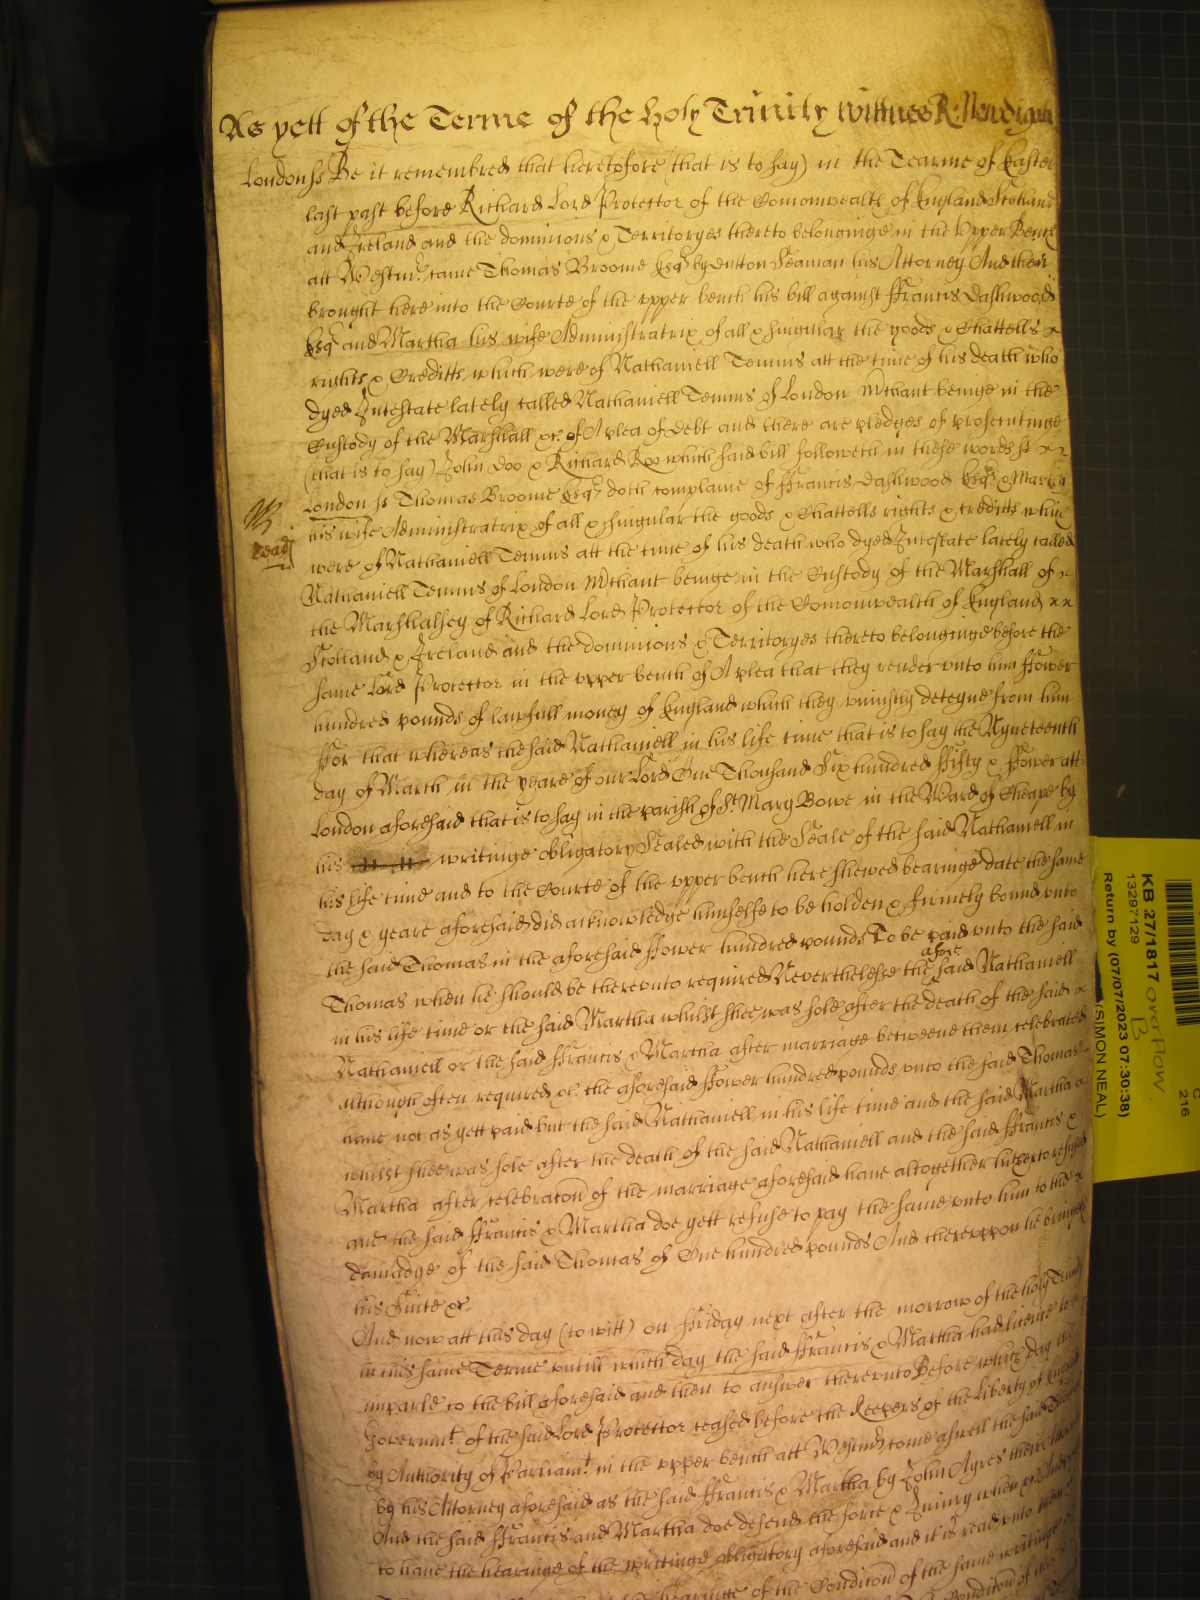 As yett of the Terme of the holy Trinity wittnes R: Newdigate
London ss Be it remembred that heretofore (that is to say) in the Tearme of Easter
last past before Richard Lord Protector of the Comonwealth of England Scotland
and Ireland and the dominions & Territoryes thereto belonginge in the Upper Bench
att Westmr. came Thomas Broome Esqr by Dutton Seaman his Attorney And then
brought here into the Courte of the vpper bench his bill against Ffrancis Dashwood
Esqr and Martha his wife Administratrix of all & singular the goods & Chattells x
rights & Creditts which were of Nathaniell Temms att the time of his death who
dyed Intestate lately called Nathaniell Temms of London Mchant beinge in the
Custody of the Marshall &c. of A plea of debt and there are pledges of prosecutinge
(that is to say) John Doo & Richard Roo which said bill followeth in these words ss x x
London ss Thomas Broome Esqr doth complaine of Ffrancis Dashwood Esqr & Martha
his wife Administratrix of all & singular the goods & Chattells rights & creditts which
were of Nathaniell Temms att the time of his death who dyed Intestate lately called
Nathaniell Temms of London Mchant beinge in the Custody of the Marshall of x
the Marshalsey of Richard Lord Protector of the Comonwealth of England x x
Scotland & Ireland and the dominions & Territoryes thereto belonginge before the
same Lord Protector in the vpper bench of A plea that they render vnto him Ffower
hundred pounds of lawfull money of England which they vniustly deteyne from him
Ffor that whereas the said Nathaniell in his life time that is to say the Nyneteenth
day of March in the yeare of our Lord One Thousand Six hundred Ffifty & Ffower att
London aforesaid that is to say in the parish of St. Mary Bowe in the Ward of Cheape by
his writinge obligatory Sealed with the Seale of the said Nathaniell in
his life time and to the Courte of the vpper bench here shewed bearinge date the same
day & yeare aforesaid did acknowledge himselfe to be holden & firmely bound vnto
the said Thomas in the aforesaid Ffower hundred pounds To be paid vnto the said
Thomas when he should be therevnto required Neverthelesse the afore said Nathaniell
in his life time or the said Martha whilst shee was sole after the death of the said x
Nathaniell or the said Ffrancis & Martha after marriage betweene them celebrated
although often required &c. the aforesaid Ffower hundred pounds vnto the said Thomas
haue not as yett paid but the said Nathaniell in his life time and the said Martha x
whilst shee was sole after the death of the said Nathaniell and the said Ffrancis &
Martha after celebracon of the marriage aforesaid haue altogether hitherto refused
and the said Ffrancis & Martha doe yett refuse to pay the same vnto him to the x
damadge of the said Thomas of One hundred pounds And therevppon he bringeth
his Suite &c.
And now att this day (to witt) on Friday next after the morrow of the holy Trinity
in this same Terme vntill which day the said Ffrancis & Martha had licence to x
imparle to the bill aforesaid and then to answer therevnto Before which day the
Governmt. of the said Lord Protector ceased before the Keepers of the Liberty of England
by Authority of Parliamt. in the vpper bench att Westmr. come aswell the said Thomas
by his Attorney aforesaid as the said Ffrancis & Martha by John Ayres their Attorney
And the said Ffrancis and Martha doe defend the force & Iniury when &c. And
to haue the hearinge of the writinge obligatory aforesaid and it is read vnto them
hearinge of the Condicon of the same writinge
Condicon of
KB 27/1817 overflow
B
13297129
Return by (07/07/2023 07:30:38)
(SIMON NEAL)
216